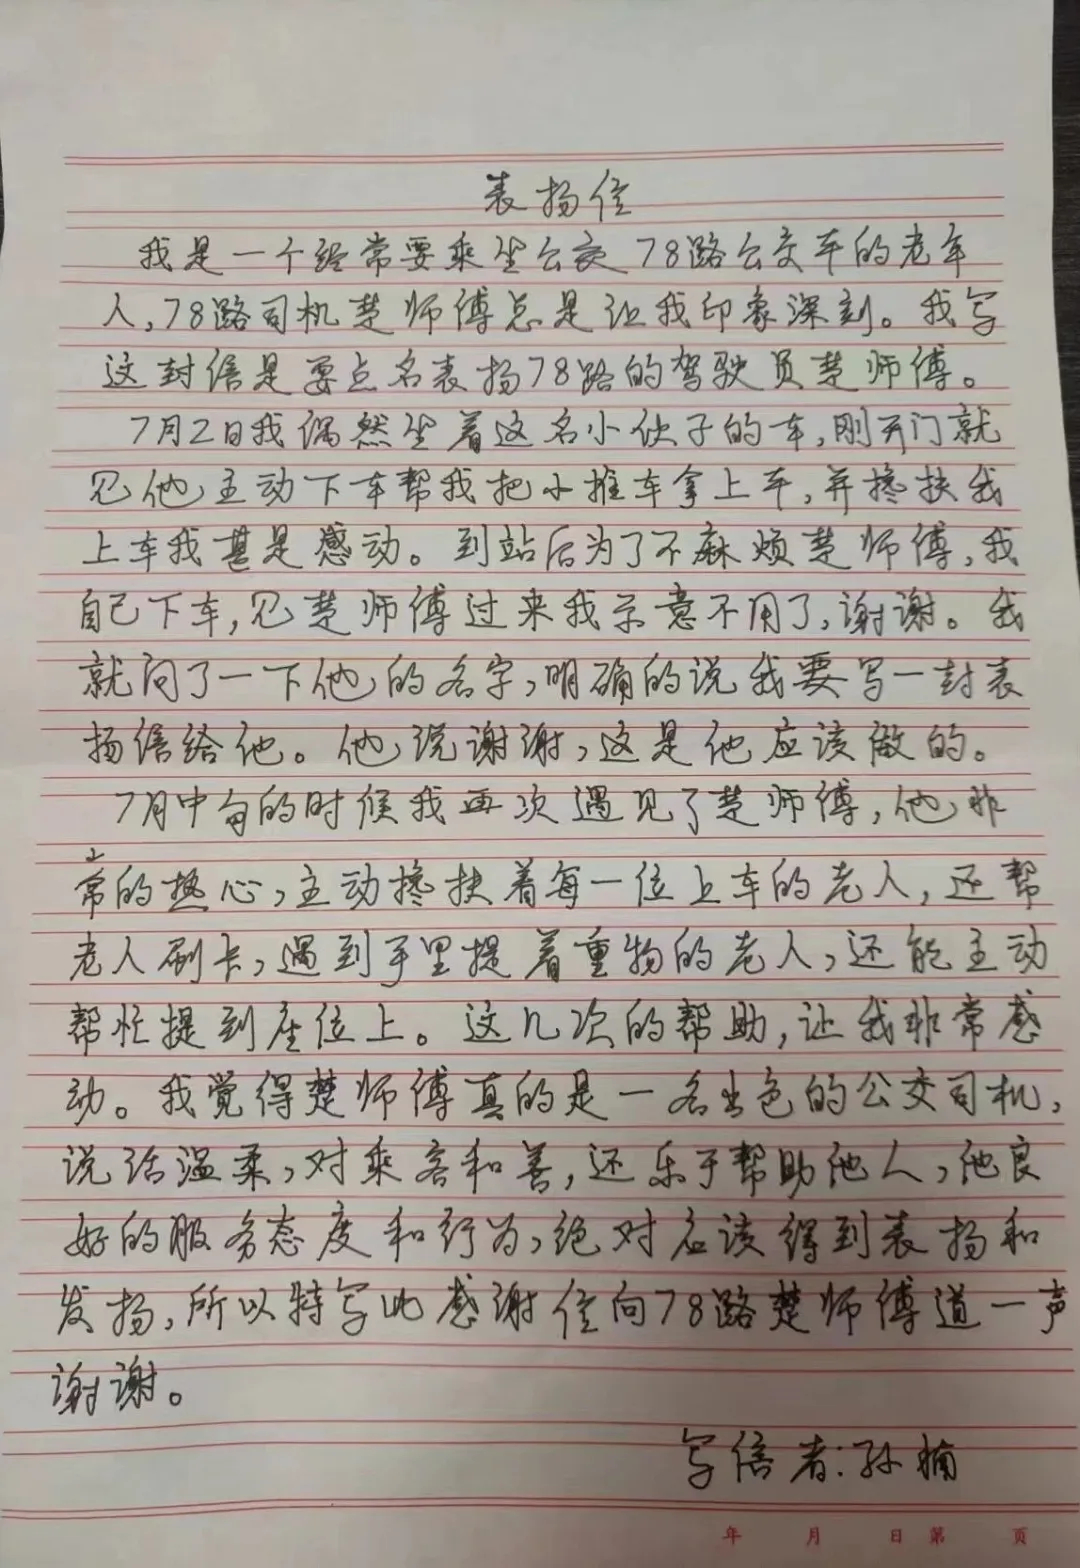 表扬信
我是一个经常要乘坐公交78路公交车的老年
人,78路司机楚师傅总是让我印象深刻。我写
这封信是要点名表扬78路的驾驶员楚师傅。
7月2日我偶然坐着这名小伙子的车,刚开门就
见他主动下车帮我把小推车拿上车,并搀扶我
上车我甚是感动。到站后为了不麻烦楚师傅,我
自己下车,见楚师傅过来我示意不用了,谢谢。我
就问了一下他的名字,明确的说我要写一封表
扬信给他。他说谢谢,这是他应该做的。
7月中旬的时候我再次遇见了楚师傅,他非
常的热心,主动搀扶着每一位上车的老人,还帮
老人刷卡,遇到手里提着重物的老人,还能主动
帮忙提到座位上。这几次的帮助,让我非常感
动。我觉得楚师傅真的是一名出色的公交司机,
说话温柔,对乘客和善,还乐于帮助他人,他良
好的服务态度和行为,绝对应该得到表扬和
发扬,所以特写此感谢信向78路楚师傅道一声
谢谢。
写信者:孙楠
年 月 日第 页